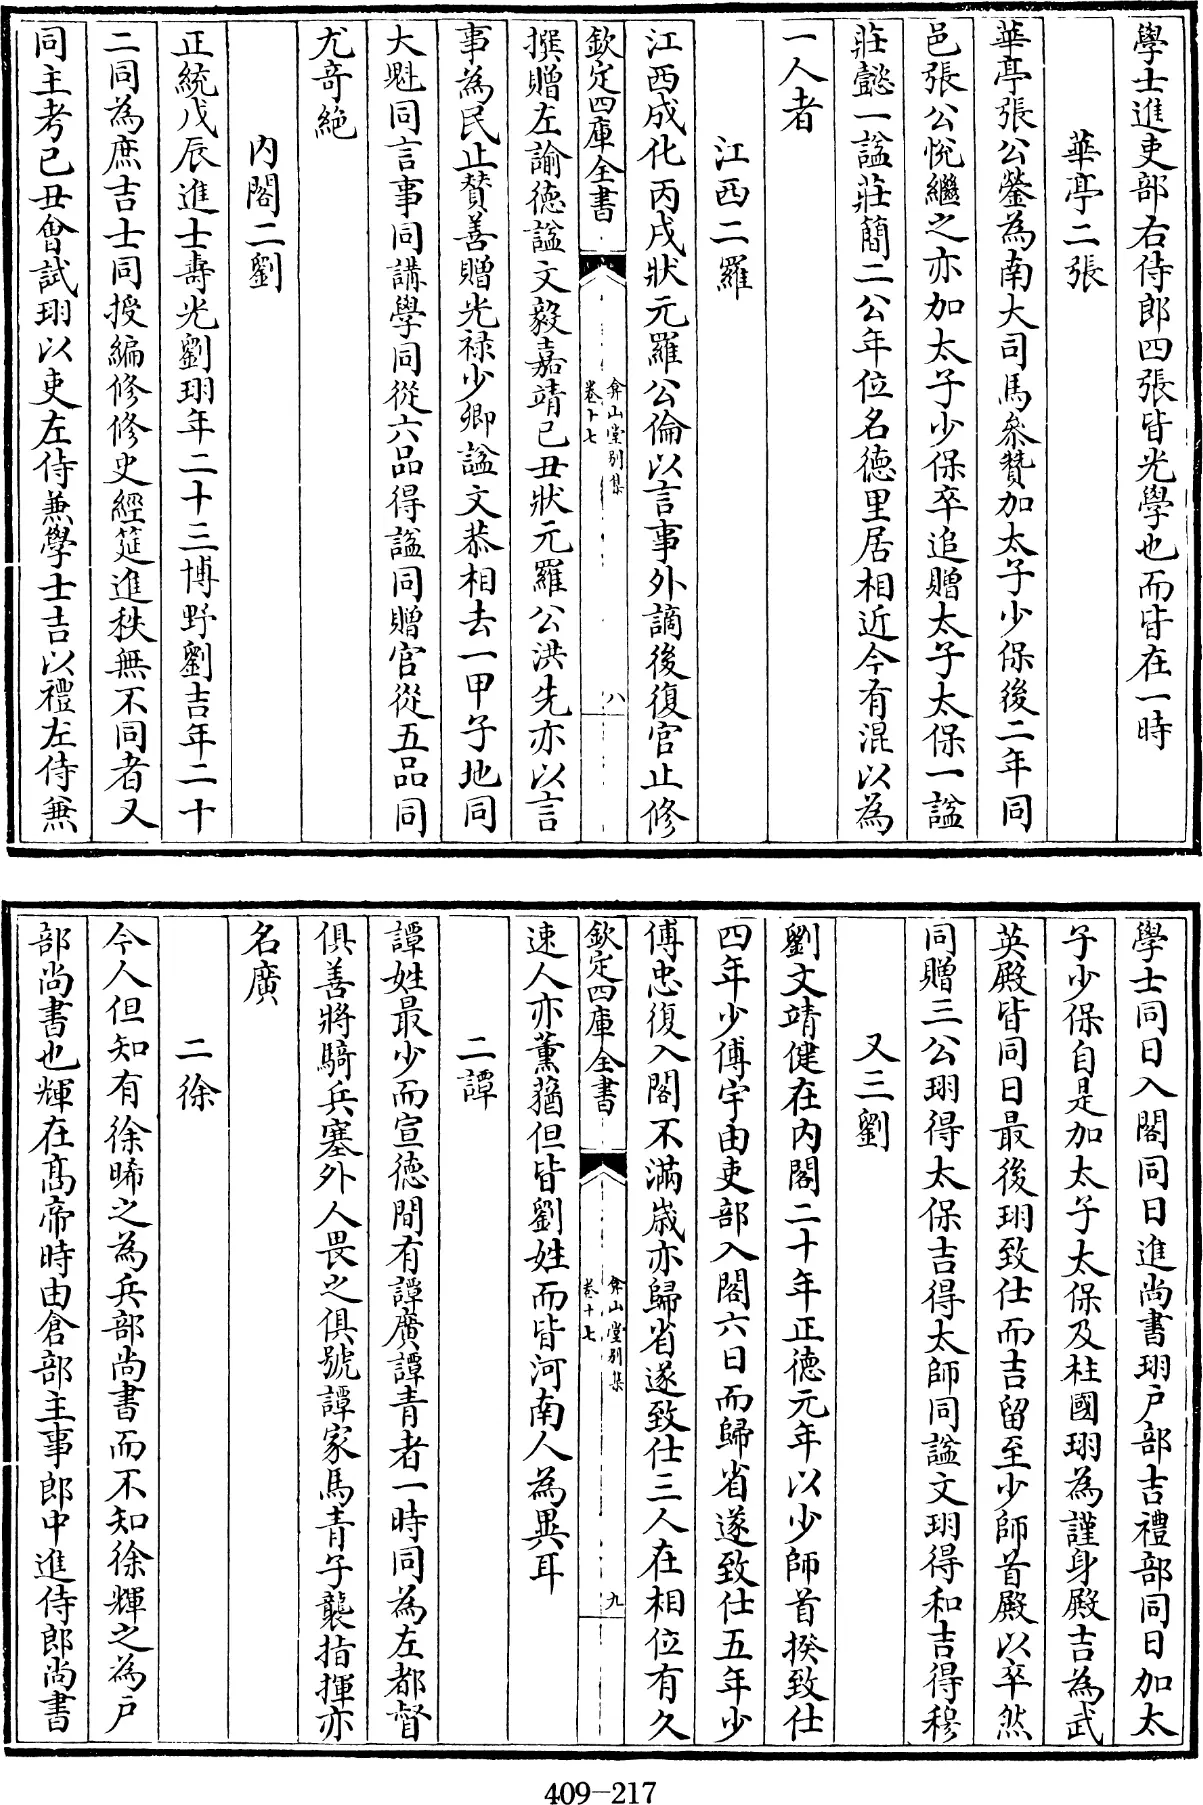 學士進吏部右侍郎四張皆光學也而皆在一時
華亭二張
華亭張公鎣為南大司馬叅贊加太子少保後二年同
邑張公悅繼之亦加太子少保卒追贈太子太保一諡
莊懿一諡莊簡二公年位名德里居相近今有混以為
一人者
江西二羅
江西成化丙戌狀元羅公倫以言事外謫後復官止修
欽定四庫全書
弇山堂别集
卷十七
八
撰贈左諭德諡文毅嘉靖己丑狀元羅公洪先亦以言
事為民止贊善贈光禄少卿諡文恭相去一甲子地同
大魁同言事同講學同從六品得諡同贈官從五品同
尤奇絶
内閣二劉
正統戊辰進士壽光劉珝年二十三博野劉吉年二十
二同為庶吉士同授編修修史經筵進秩無不同者又
同主考己丑會試珝以吏左侍兼學士吉以禮左侍兼
學士同日入閣同日進尚書珝户部吉禮部同日加太
子少保自是加太子太保及柱國珝為謹身殿吉為武
英殿皆同日最後珝致仕而吉留至少師首殿以卒然
同贈三公珝得太保吉得太師同諡文珝得和吉得穆
又三劉
劉文靖健在内閣二十年正德元年以少師首揆致仕
四年少傅宇由吏部入閣六日而歸省遂致仕五年少
傅忠復入閣不滿嵗亦歸省遂致仕三人在相位有久
欽定四庫全書
弇山堂别集
卷十七
九
速人亦薰蕕但皆劉姓而皆河南人為異耳
二譚
譚姓最少而宣德間有譚廣譚青者一時同為左都督
俱善將騎兵塞外人畏之俱號譚家馬青子襲指揮亦
名廣
二徐
今人但知有徐晞之為兵部尚書而不知徐輝之為户
部尚書也輝在髙帝時由倉部主事郎中進侍郎尚書
409-217